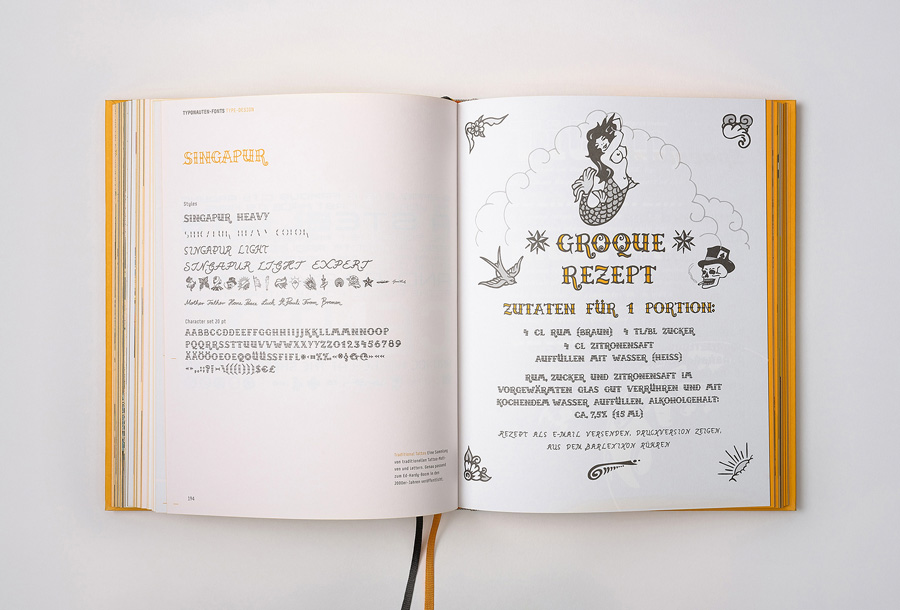 TYPONAUTEN-FONTS TYPE-DESIGN
SINGAPUR
Styles
SINGAPUR HEAVY
SINGAPUR HEAVY COLOR
SINGAPUR LIGHT
SINGAPUR LIGHT EXPERT
Mother Father Hans Luck St. Pauli Bremen
Character set 20 pt
AABBCCDDEEFFGGHHIIJJKKLLMMNNOOP
PQQRRSSTTUUVVWWXXYYZZ0123456789
194
Traditional Tattoo Eine Sammlung
von traditionellen Tattoo-Moti-
ven und Lettern. Genau passend
zum Ed-Hardy-Boom in den
2000er-Jahren veröffentlicht.
GROQUE
REZEPT
ZUTATEN FÜR 1 PORTION:
4 CL RUM (BRAUN) 4 TL/BL ZUCKER
4 CL ZITRONENSAFT
AUFFÜLLEN MIT WASSER (HEISS)
RUM, ZUCKER UND ZITRONENSAFT IM
VORGEWÄRMTEN GLAS GUT VERRÜHREN UND MIT
KOCHENDEM WASSER AUFFÜLLEN. ALKOHOLGEHALT:
CA. 7,5% (15 ML)
REZEPT ALS E-MAIL VERSENDEN, DRUCKVERSION ZEIGEN,
AUS DEM BARLEXIKON RÜHREN